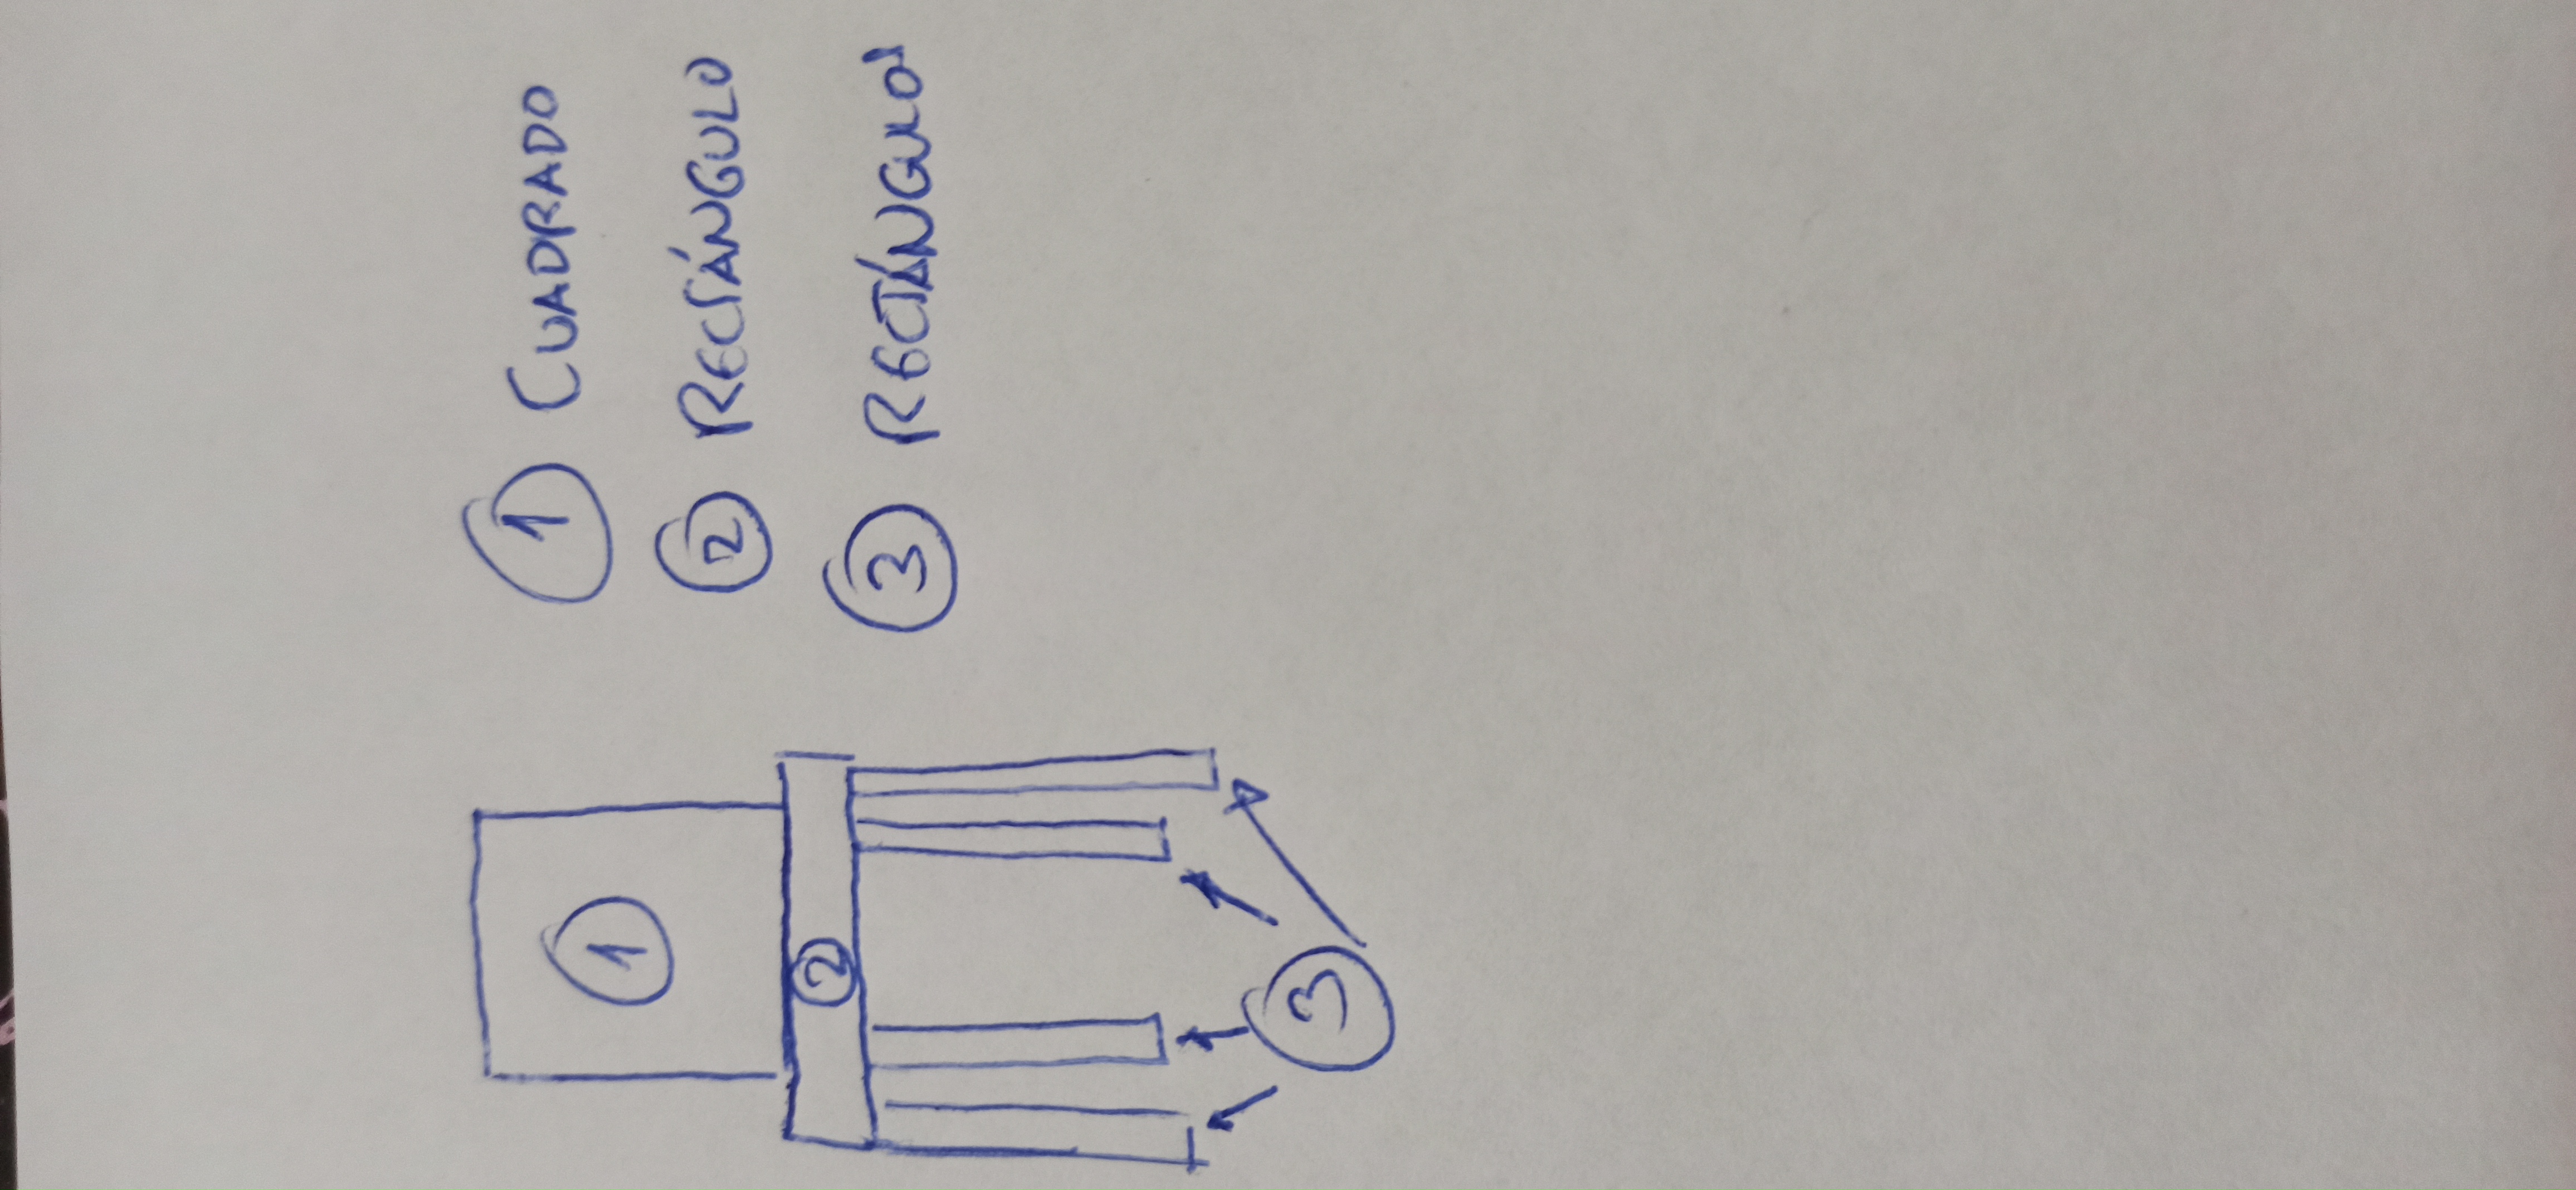 1
① CUADRADO
2
② RECTÁNGULO
③ RECTÁNGULOS
3